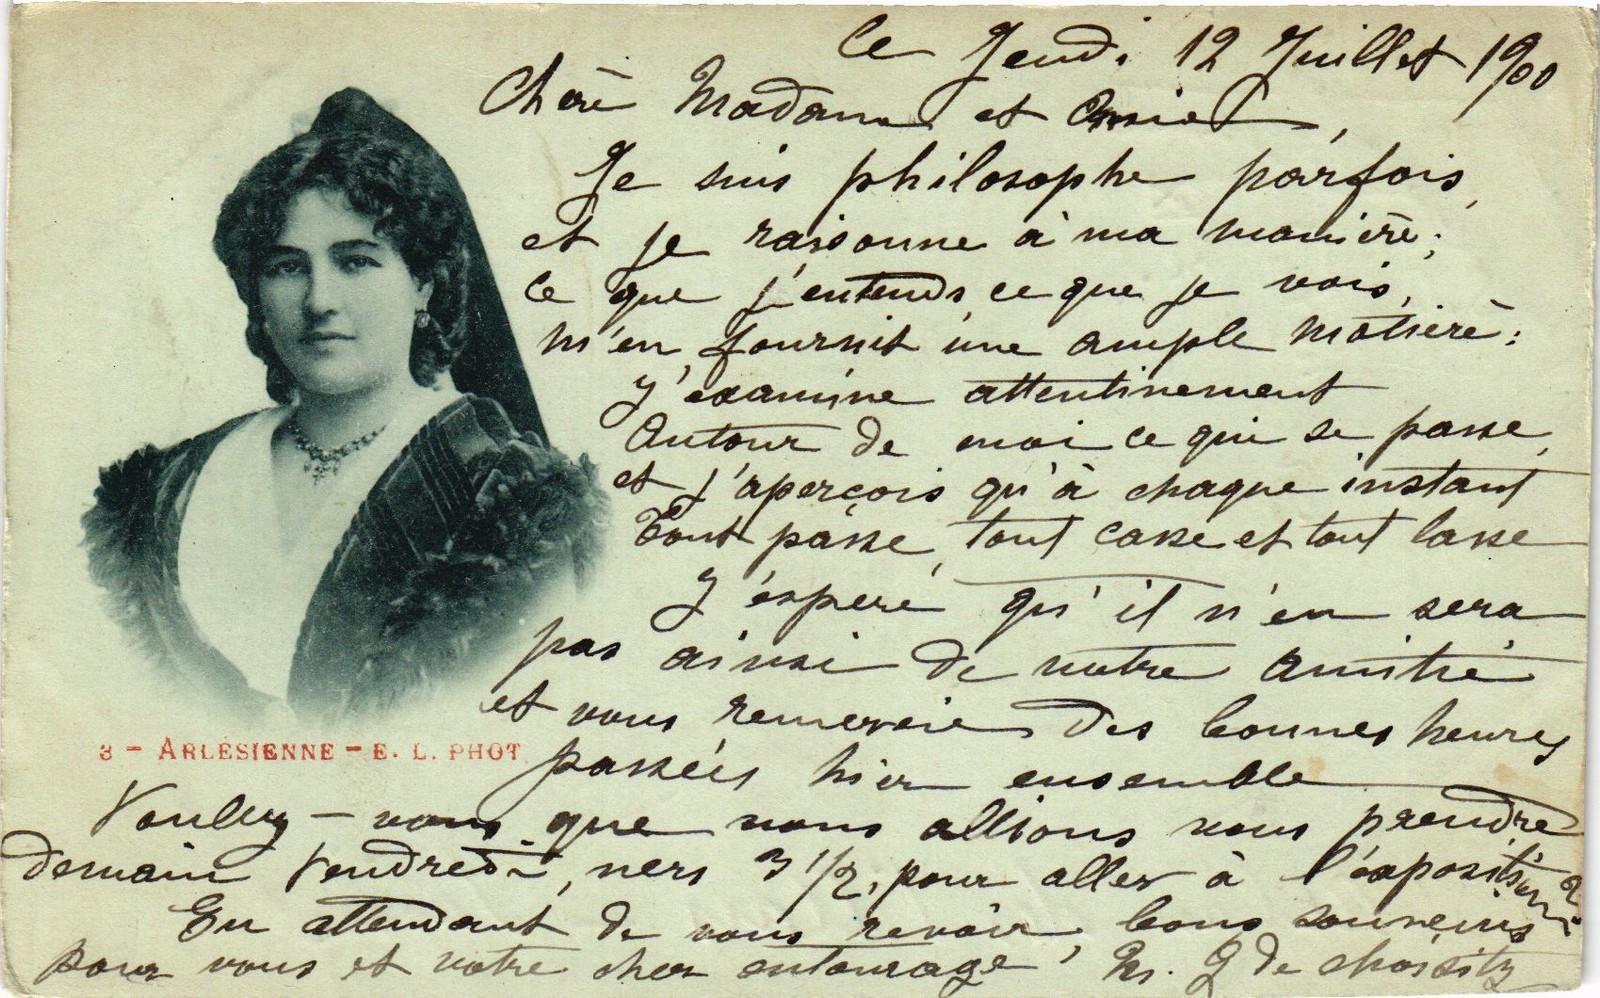 Ce Jeudi 12 Juillet 1900
Chère Madame et Amie,
Je suis philosophe parfois,
et je raisonne à ma manière;
Ce que j'entends, ce que je vois,
M'en fournit une ample matière:
J'examine attentivement
Autour de moi ce qui se passe,
et j'aperçois qu'à chaque instant
Tout passe, tout casse et tout lasse
J'éspère qu'il n'en sera
pas ainsi de notre amitié
et vous remercie des bonnes heures
passées hier ensemble
3 - ARLÉSIENNE - E. L. PHOT
Voulez-vous que nous allions vous prendre
demain Vendredi, vers 3 1/2, pour aller à l'éxposition?
En attendant de vous revoir, bons souvenirs
pour vous et votre cher entourage. M. J de